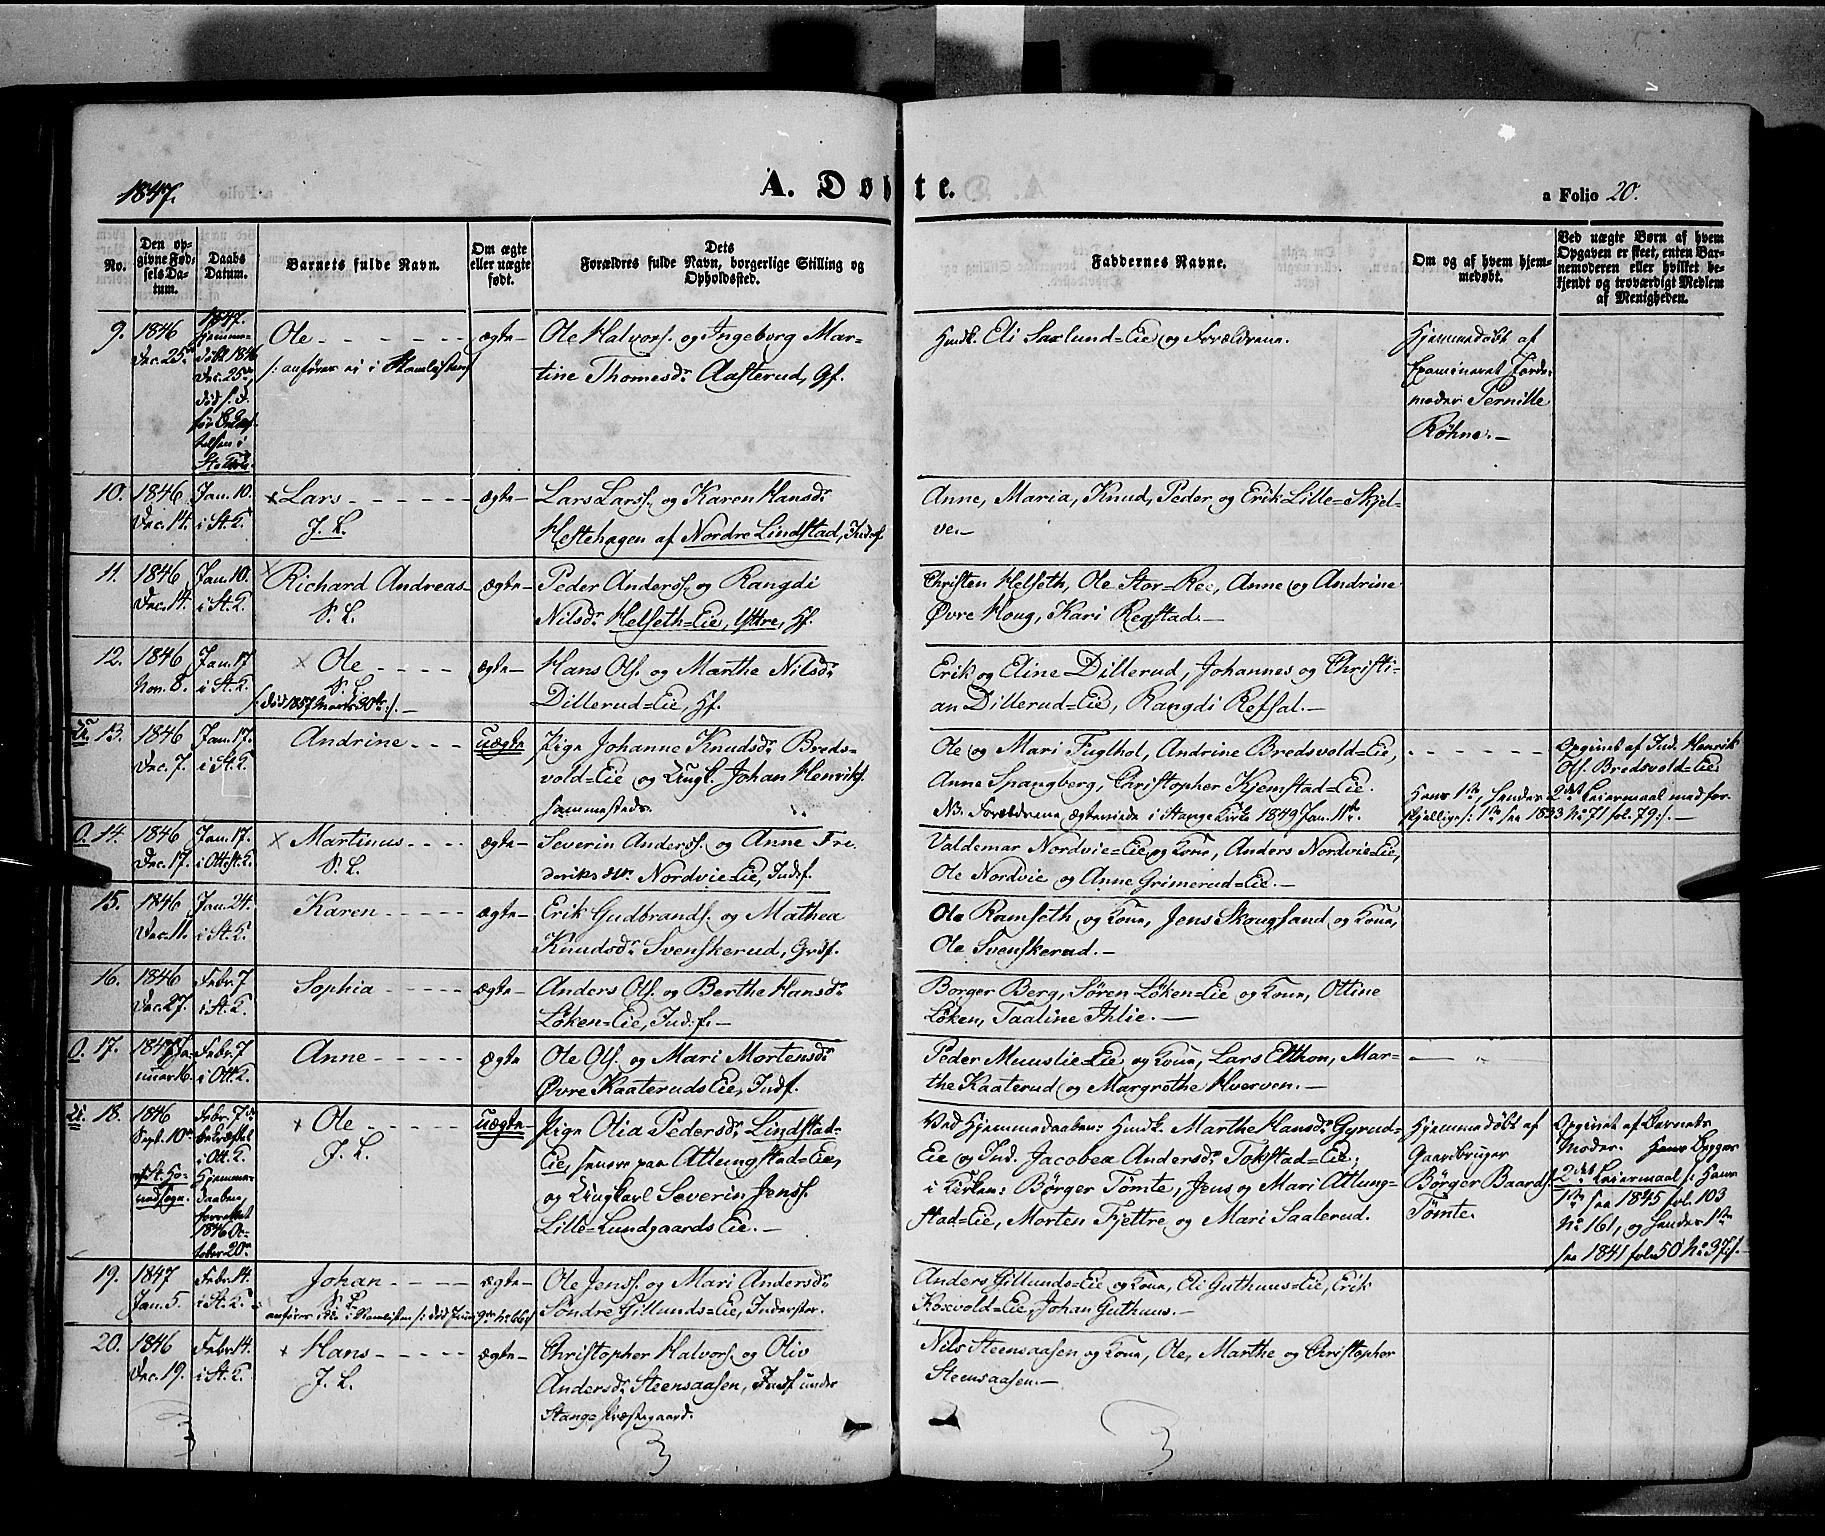 1847.
A. Døbte.
a Folio 20.
No.
Den op-
givne Fød-
sels Da-
tum.
Daabs
Datum.
Barnets fulde Navn.
Om ægte
eller uægte
født.
Dets
Forældres fulde Navn, borgerlige Stilling og
Opholdssted.
Faddernes Navne.
Om og af hvem hjem-
medøbt.
Ved uægte Børn af hvem
Opgaven er skeet, enten Bar-
nemoderen eller hvilket be-
kjendt og troværdigt Medlem
af Menigheden.
9.
1846
Dec. 25de
1847.
Hjemme-
døbt 1846
Dec. 25de
død s. D.
før
i
St. K.
Ole
/: anføres ei i
ægte
Ole Halvors. og Ingeborg Mar-
tine Thomesdr. Aasterud, Gf.
Husk. Eli Saxlund-Eie og Forældrene.
Hjemmedøbt af
Examineret Jorde-
moder Pernille
Røhne.
10.
1846
Dec. 14.
Jan. 10.
i St. K.
x Lars
J. L.
ægte
Lars Lars. og Karen Hansdr.
Hestehagen af Nordre Lindstad, Inds.
Anne, Maria, Knud, Peder og Erik Lille-Skjel-
ve.
11.
1846
Dec. 14.
Jan. 10.
i St. K.
x Richard Andreas
S. L.
ægte
Peder Anders. og Rangdi
Nilsdr. Helseth-Eie, Yttre, Hf.
Christen Helseth, Ole Stor-Ree, Anne og Andrine
Øvre Houg, Kari Regstad.
12.
1846
Nov. 8.
Jan. 17
i St. K.
x Ole
S. L.
/: død 1857 Marts 30te :/
ægte
Hans Ols. og Marthe Nilsdr.
Dillerud-Eie, Hf.
Erik og Eline Dillerud, Johannes og Christi-
an Dillerud-Eie, Rangdi Refsal.
13.
1846
Dec. 7.
Jan. 17.
i St. K.
Andrine
uægte
Pige Johanne Knudsdr. Breds-
vold-Eie og Ungk. Johan Henriks.
sammesteds.
Ole og Mari Fuglhol, Andrine Bredsvold-Eie,
Anne Spangberg, Christopher Kjemstad-Eie.
NB. Forældrene ægteviede i Stange Kirke 1849 Jan. 11te.
Opgivet af Ind. Henrik
Ols. Bredsvold-Eie.
Hans 1te, hendes 2det Leiermaal med for-
skjellige /: 1te see 1843 No 71 fol. 79 :/.
O. 14.
1846
Dec. 17.
Jan. 17.
i Ott. K.
x Martinus
S. L.
ægte
Severin Anders. og Anne Fre-
deriksdtr. Nordvie-Eie, Inds.
Valdemar Nordvie-Eie og Kone, Anders Nordvie-Eie,
Ole Nordvie og Anne Grimerud-Eie.
15.
1846
Dec. 11.
Jan. 24.
i St. K.
Karen
ægte
Erik Gudbrands. og Mathea
Knudsdr. Svenskerud, Grdf.
Ole Ramseth og Kone, Jens Skougsand og Kone,
Ole Svenskerud.
16.
1846
Dec. 27.
Febr. 7
i St. K.
Sophia
ægte
Anders Ols. og Berthe Hansdr.
Løken-Eie, Inds.
Borger Berg, Søren Løken-Eie og Kone, Ottine
Løken, Taaline Ihlie.
O. 17.
1847 Ja-
nuar 16.
Febr. 7
i Ott. K.
Anne
ægte
Ole Ols. og Mari Mortensdr.
Øvre Kaateruds Eie, Inds.
Peder Muuslie-Eie og Kone, Lars Elthon, Mar-
the Kaaterud og Margrethe Hverven.
18.
1846
Sept. 10de
Febr. 7de
bekræftet
i Ott. K.
Hjemme-
daaben
forrettet
1846 Oc-
tober 20de
x Ole
J. L.
uægte
Pige Olia Pedersdr. Lindstad-
Eie, senere paa Atlungstad-Eie,
og Ungkarl Severin Jens.
Lille-Lundgaards Eie.
Ved Hjemmedaaben: Husk. Marthe Hansdr. Gyrud-
Eie og Ind. Jacobea Andersdr. Tokstad-Eie;
i Kirken: Børger Tømte, Jens og Mari Atlung-
stad-Eie, Morten Fjettre og Mari Saaterud.
Hjemmedøbt af
Gaardbruger
Børger Baards.
Tømte.
Opgivet af Barnets
Moder. Hans Begges
2det Leiermaal /: Hans
1te see 1845 fol. 103
No 161, og hendes 1te
see 1841 fol. 50 No 37 :/.
19.
1847
Jan. 5.
Febr. 14.
i St. K.
Johan
S. L.
ægte
Ole Jens. og Mari Andersdr.
Søndre Gillunds-Eie, Inderster.
Anders Gillunds-Eie og Kone, Ole Guthuus-Eie, Erik
Koxvold-Eie, Johan Guthuus.
20.
1846
Dec. 19.
Febr. 14.
i St. K.
x Hans
J. L.
ægte
Christopher Halvors. og Oliv
Andersdr. Steensaasen, Inds. under
Stange Præstegaard.
Nils Steensaasen og Kone, Ole, Marthe og Christopher
Steensaasen.